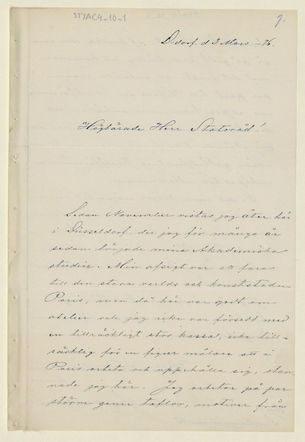 9.
D.dorf. d 3 Mars -76.
Högtärade Herr Statsråd!
Sedan November vistas jag åter här
i Düsseldorf der jag för många år
sedan började mina Akademiska
studier. Min afsigt var att fara
till den stora verlds och konststaden
Paris, men då här var godt om
atelier och jag icke var försedd med
en tillräckligt stor kassa, icke till-
räcklig för en figur målare att i
Paris arbeta och uppehålla sig, stan-
nade jag här. Jag arbetar på par
större genre taflor, motiver från